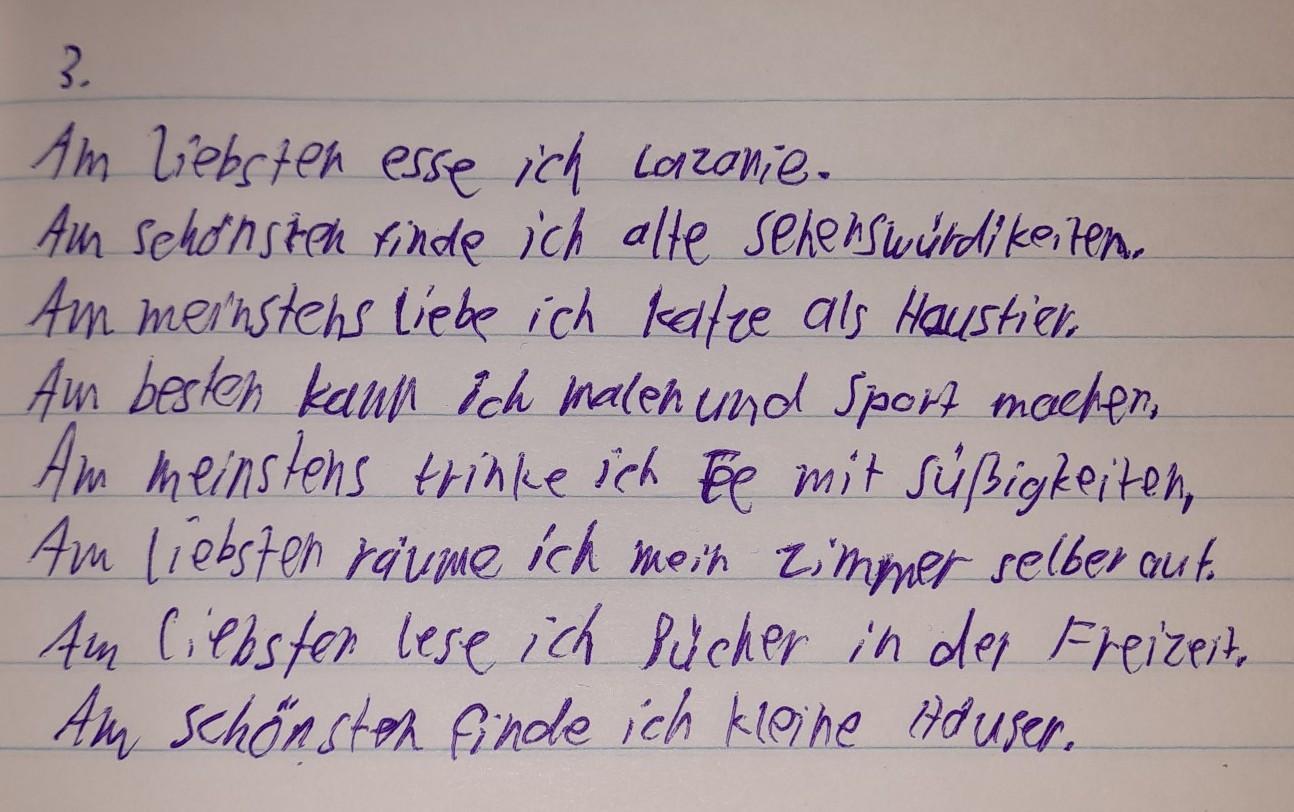 3.
Am liebsten esse ich Lazanie.
Am schönsten finde ich alte Sehenswürdikeiten.
Am meinstens liebe ich katze als Haustier.
Am besten kann ich malen und Sport machen,
Am meinstens trinke ich Tee mit Süßigkeiten,
Am liebsten räume ich mein Zimmer selber auf.
Am liebsten lese ich Bücher in der Freizeit.
Am schönsten finde ich kleine Häuser.